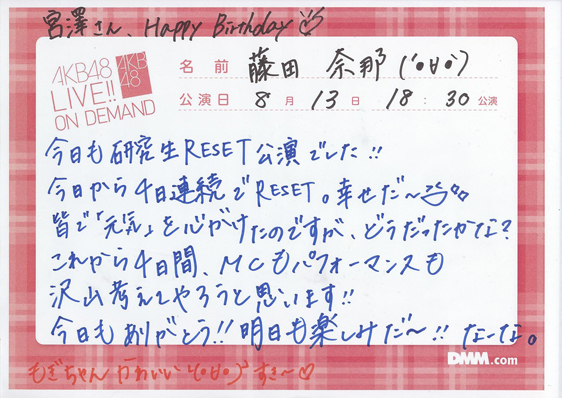 宮澤さん、Happy Birthday♡
AKB48
LIVE!!
ON DEMAND
AKB
48
名前 藤田 奈那('•∀•')
公演日 8月13日 18:30公演
今日も研究生RESET公演でした!!
今日から4日連続でRESET。幸せだ〜
皆で「元気」を心がけたのですが、どうだったかな?
これから4日間、MCもパフォーマンスも
沢山考えてやろうと思います!!
今日もありがとう!!明日も楽しみだ〜!! なーな。
DMM.com
もぎちゃんかわいい('•∀•')すき〜♡